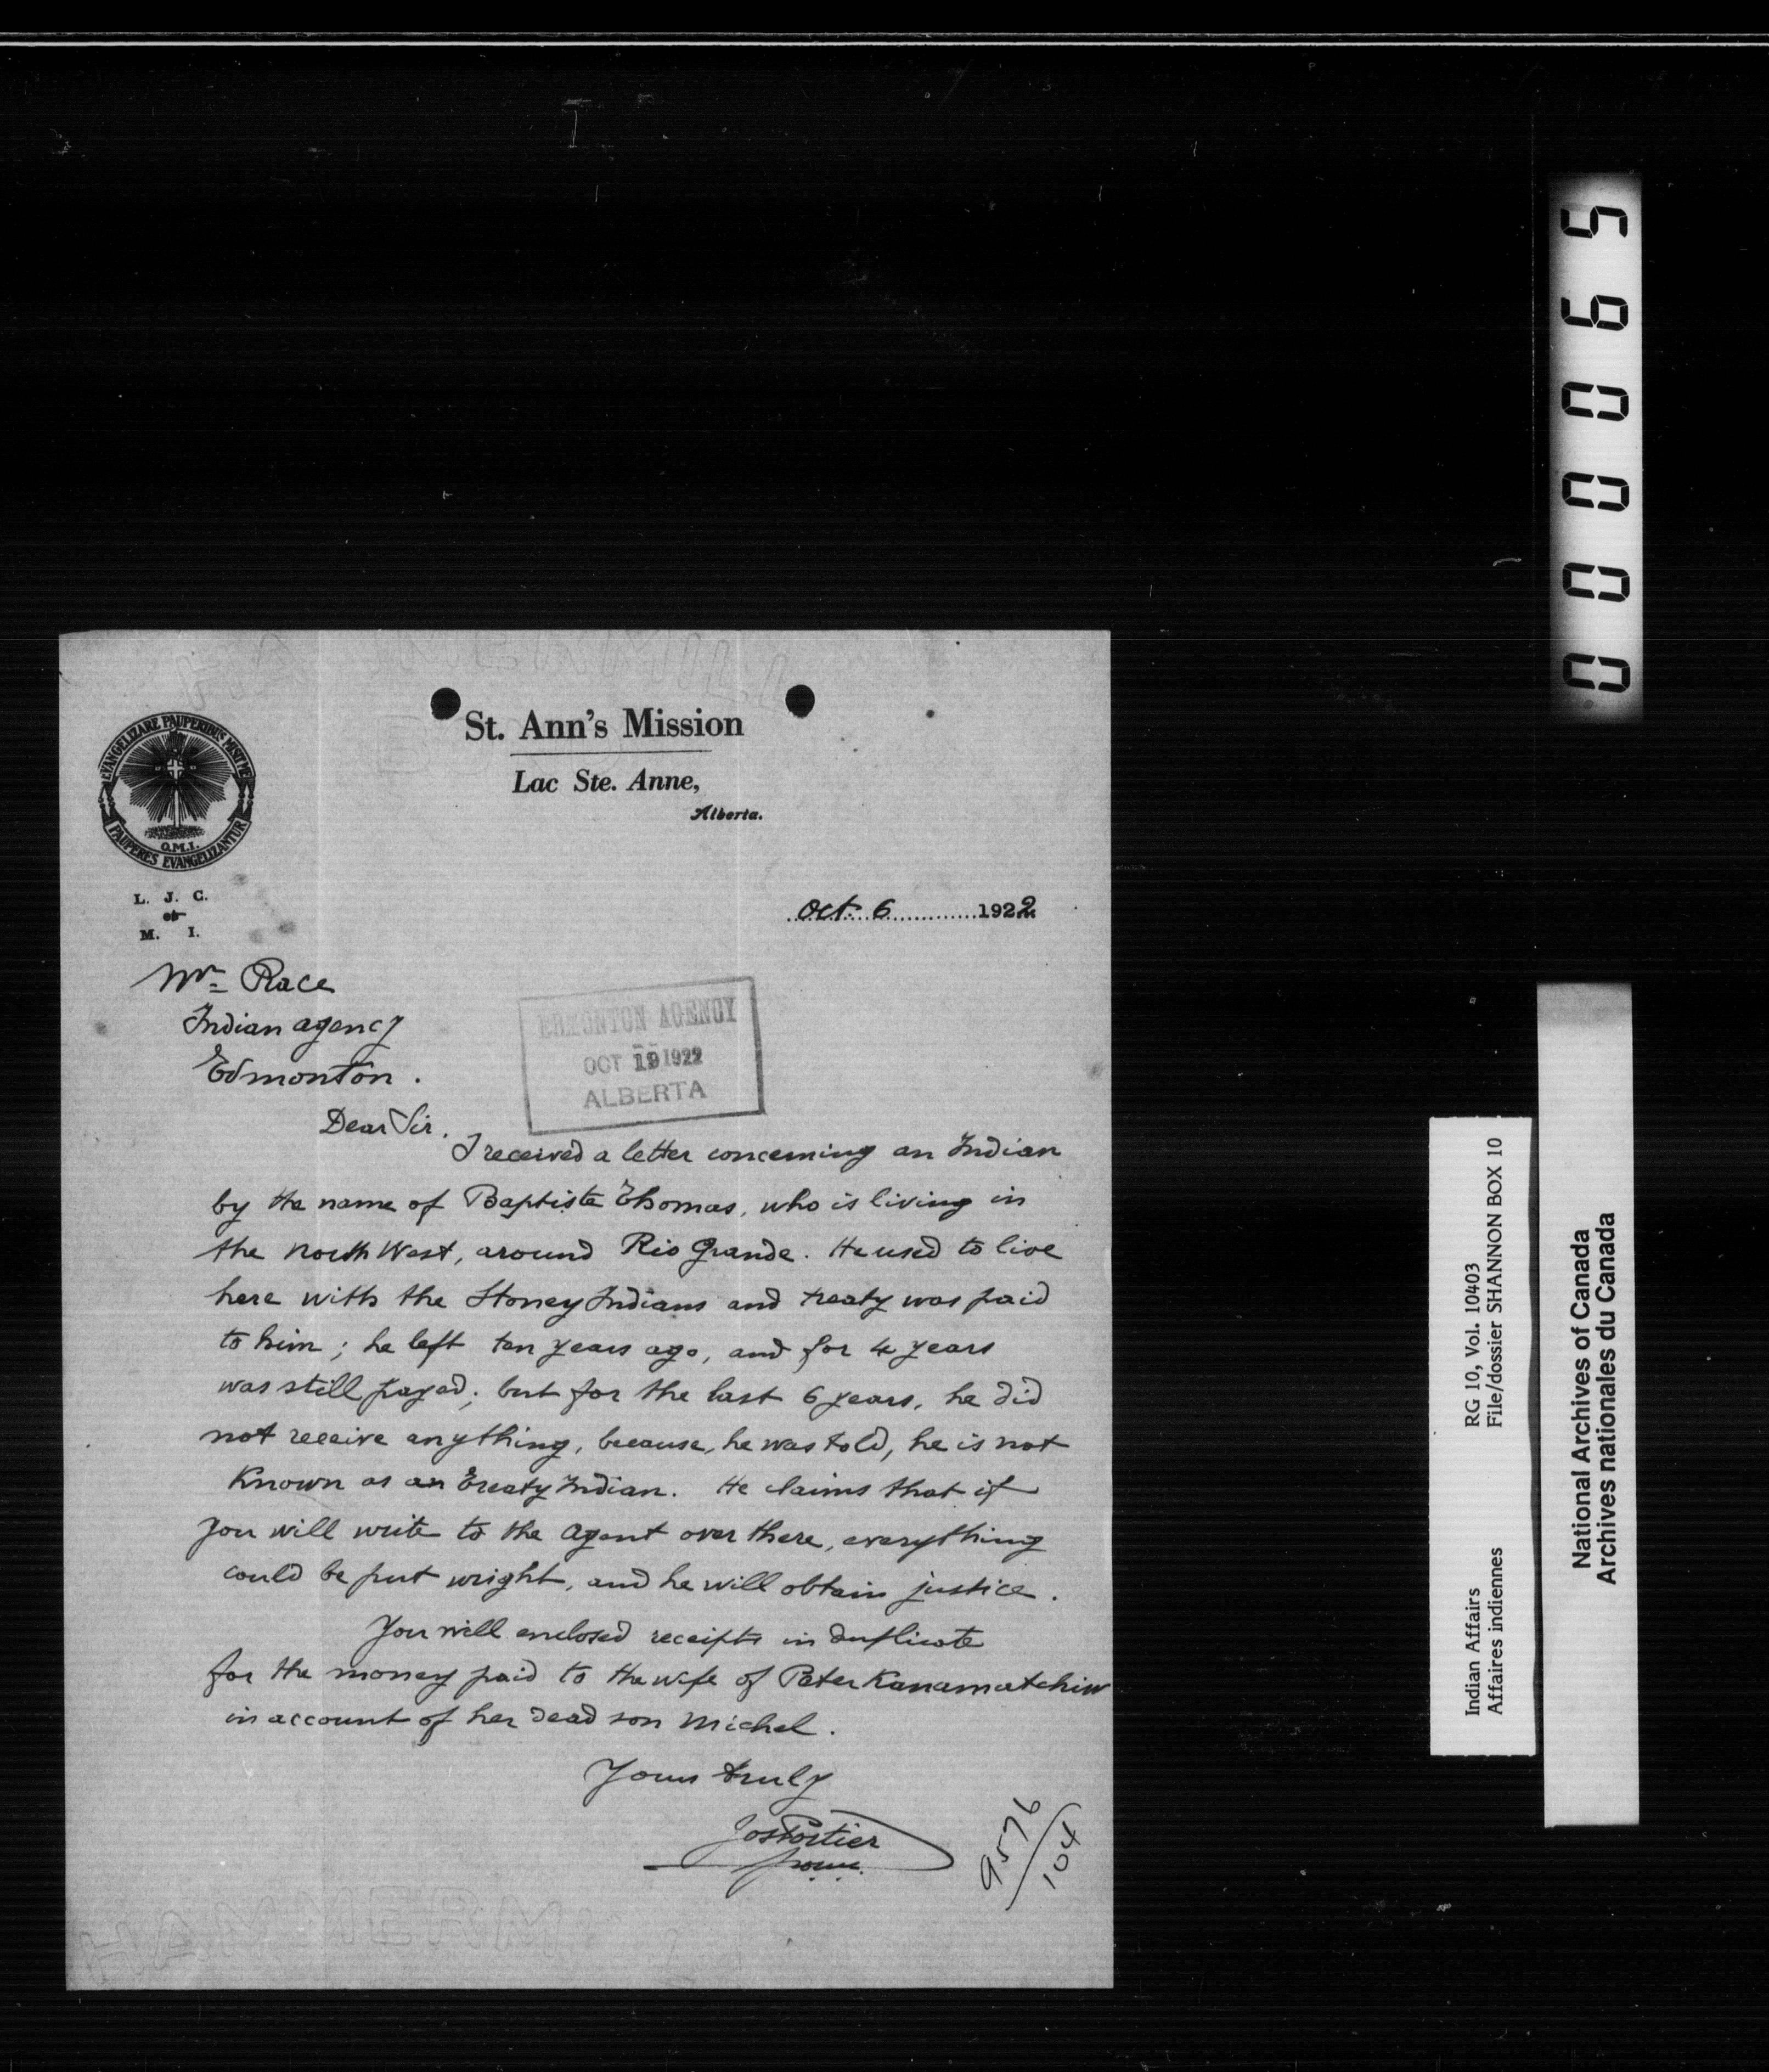 St. Ann's Mission
Lac Ste. Anne,
Alberta.
EVANGELIZARE PAUPERIBUS MISIT ME
O.M.I.
PAUPERES EVANGELIZANTUR
L. J. C.
et
M. I.
Oct. 6 1922
Mr Race
Indian agency
Edmonton.
EDMONTON AGENCY
OCT 19 1922
ALBERTA
Dear Sir.
I received a letter concerning an Indian
by the name of Baptiste Thomas, who is living in
the North West, around Rio Grande. He used to live
here with the Stoney Indians and treaty was paid
to him; he left ten years ago, and for 4 years
was still payed; but for the last 6 years, he did
not receive anything, because, he was told, he is not
Known as an Treaty Indian. He claims that if
you will write to the Agent over there, everything
could be put wright, and he will obtain justice.
You will enclosed receipts in duplicate
for the money paid to the wife of Peter Kanamatchiw
in account of her dead son Michel.
Yours truly
Jos Portier
9576/104
HAMMERMILL
HAMMERM
000065
RG 10, Vol. 10403
File/dossier SHANNON BOX 10
Indian Affairs
Affaires indiennes
National Archives of Canada
Archives nationales du Canada